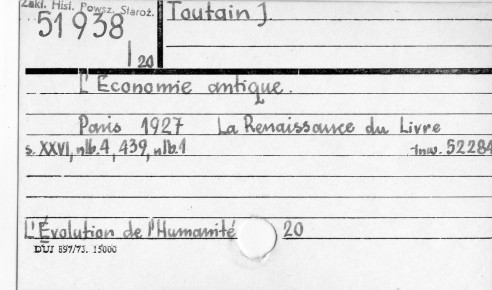 Zakł. Hist. Powsz. Staroż.
51938
20
Toutain J.
L'Économie antique.
Paris 1927 La Renaissance du Livre
s. XXVI, nlb.4, 439, nlb.1 Inw. 52284
L'Évolution de l'Humanité 20
DUJ 897/73. 15000